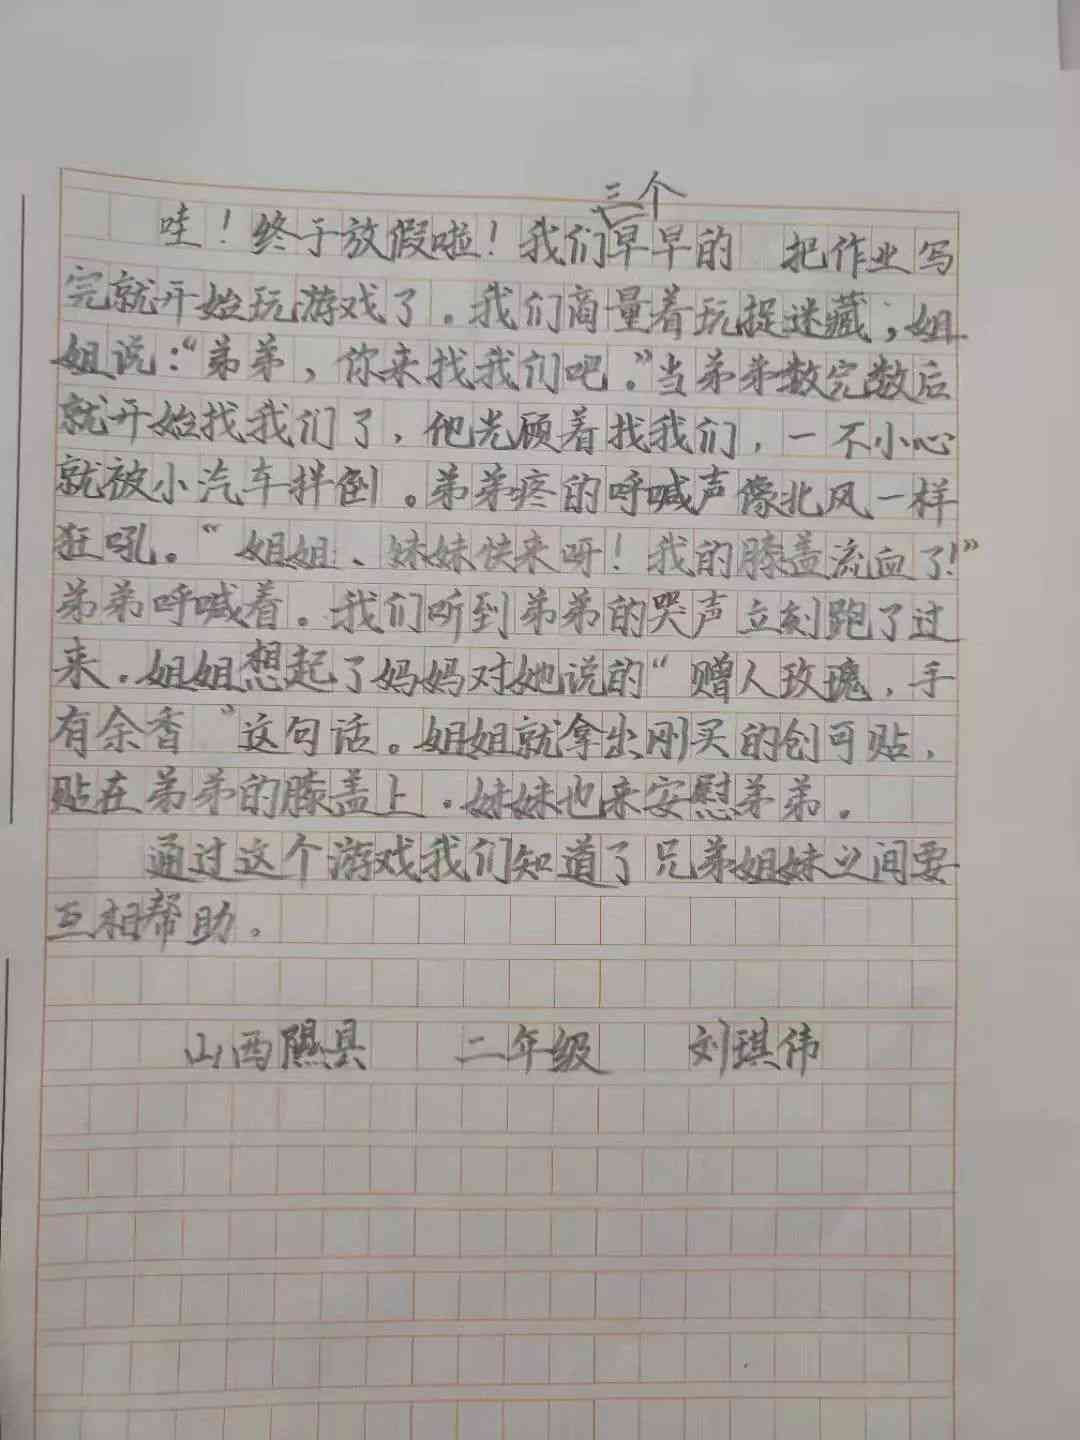 三个
哇！终于放假啦！我们早早的 把作业写
完就开始玩游戏了。我们商量着玩捉迷藏；姐
姐说：“弟弟，你来找我们吧。”当弟弟数完数后
就开始找我们了，他光顾着找我们，一不小心
就被小汽车拌倒。弟弟疼的呼喊声像北风一样
狂吼。“姐姐、妹妹快来呀！我的膝盖流血了！”
弟弟呼喊着。我们听到弟弟的哭声立刻跑了过
来。姐姐想起了妈妈对她说的“赠人玫瑰，手
有余香”这句话。姐姐就拿出刚买的创可贴，
贴在弟弟的膝盖上。妹妹也来安慰弟弟。
通过这个游戏我们知道了兄弟姐妹之间要
互相帮助。
山西隰县 二年级 刘琪伟